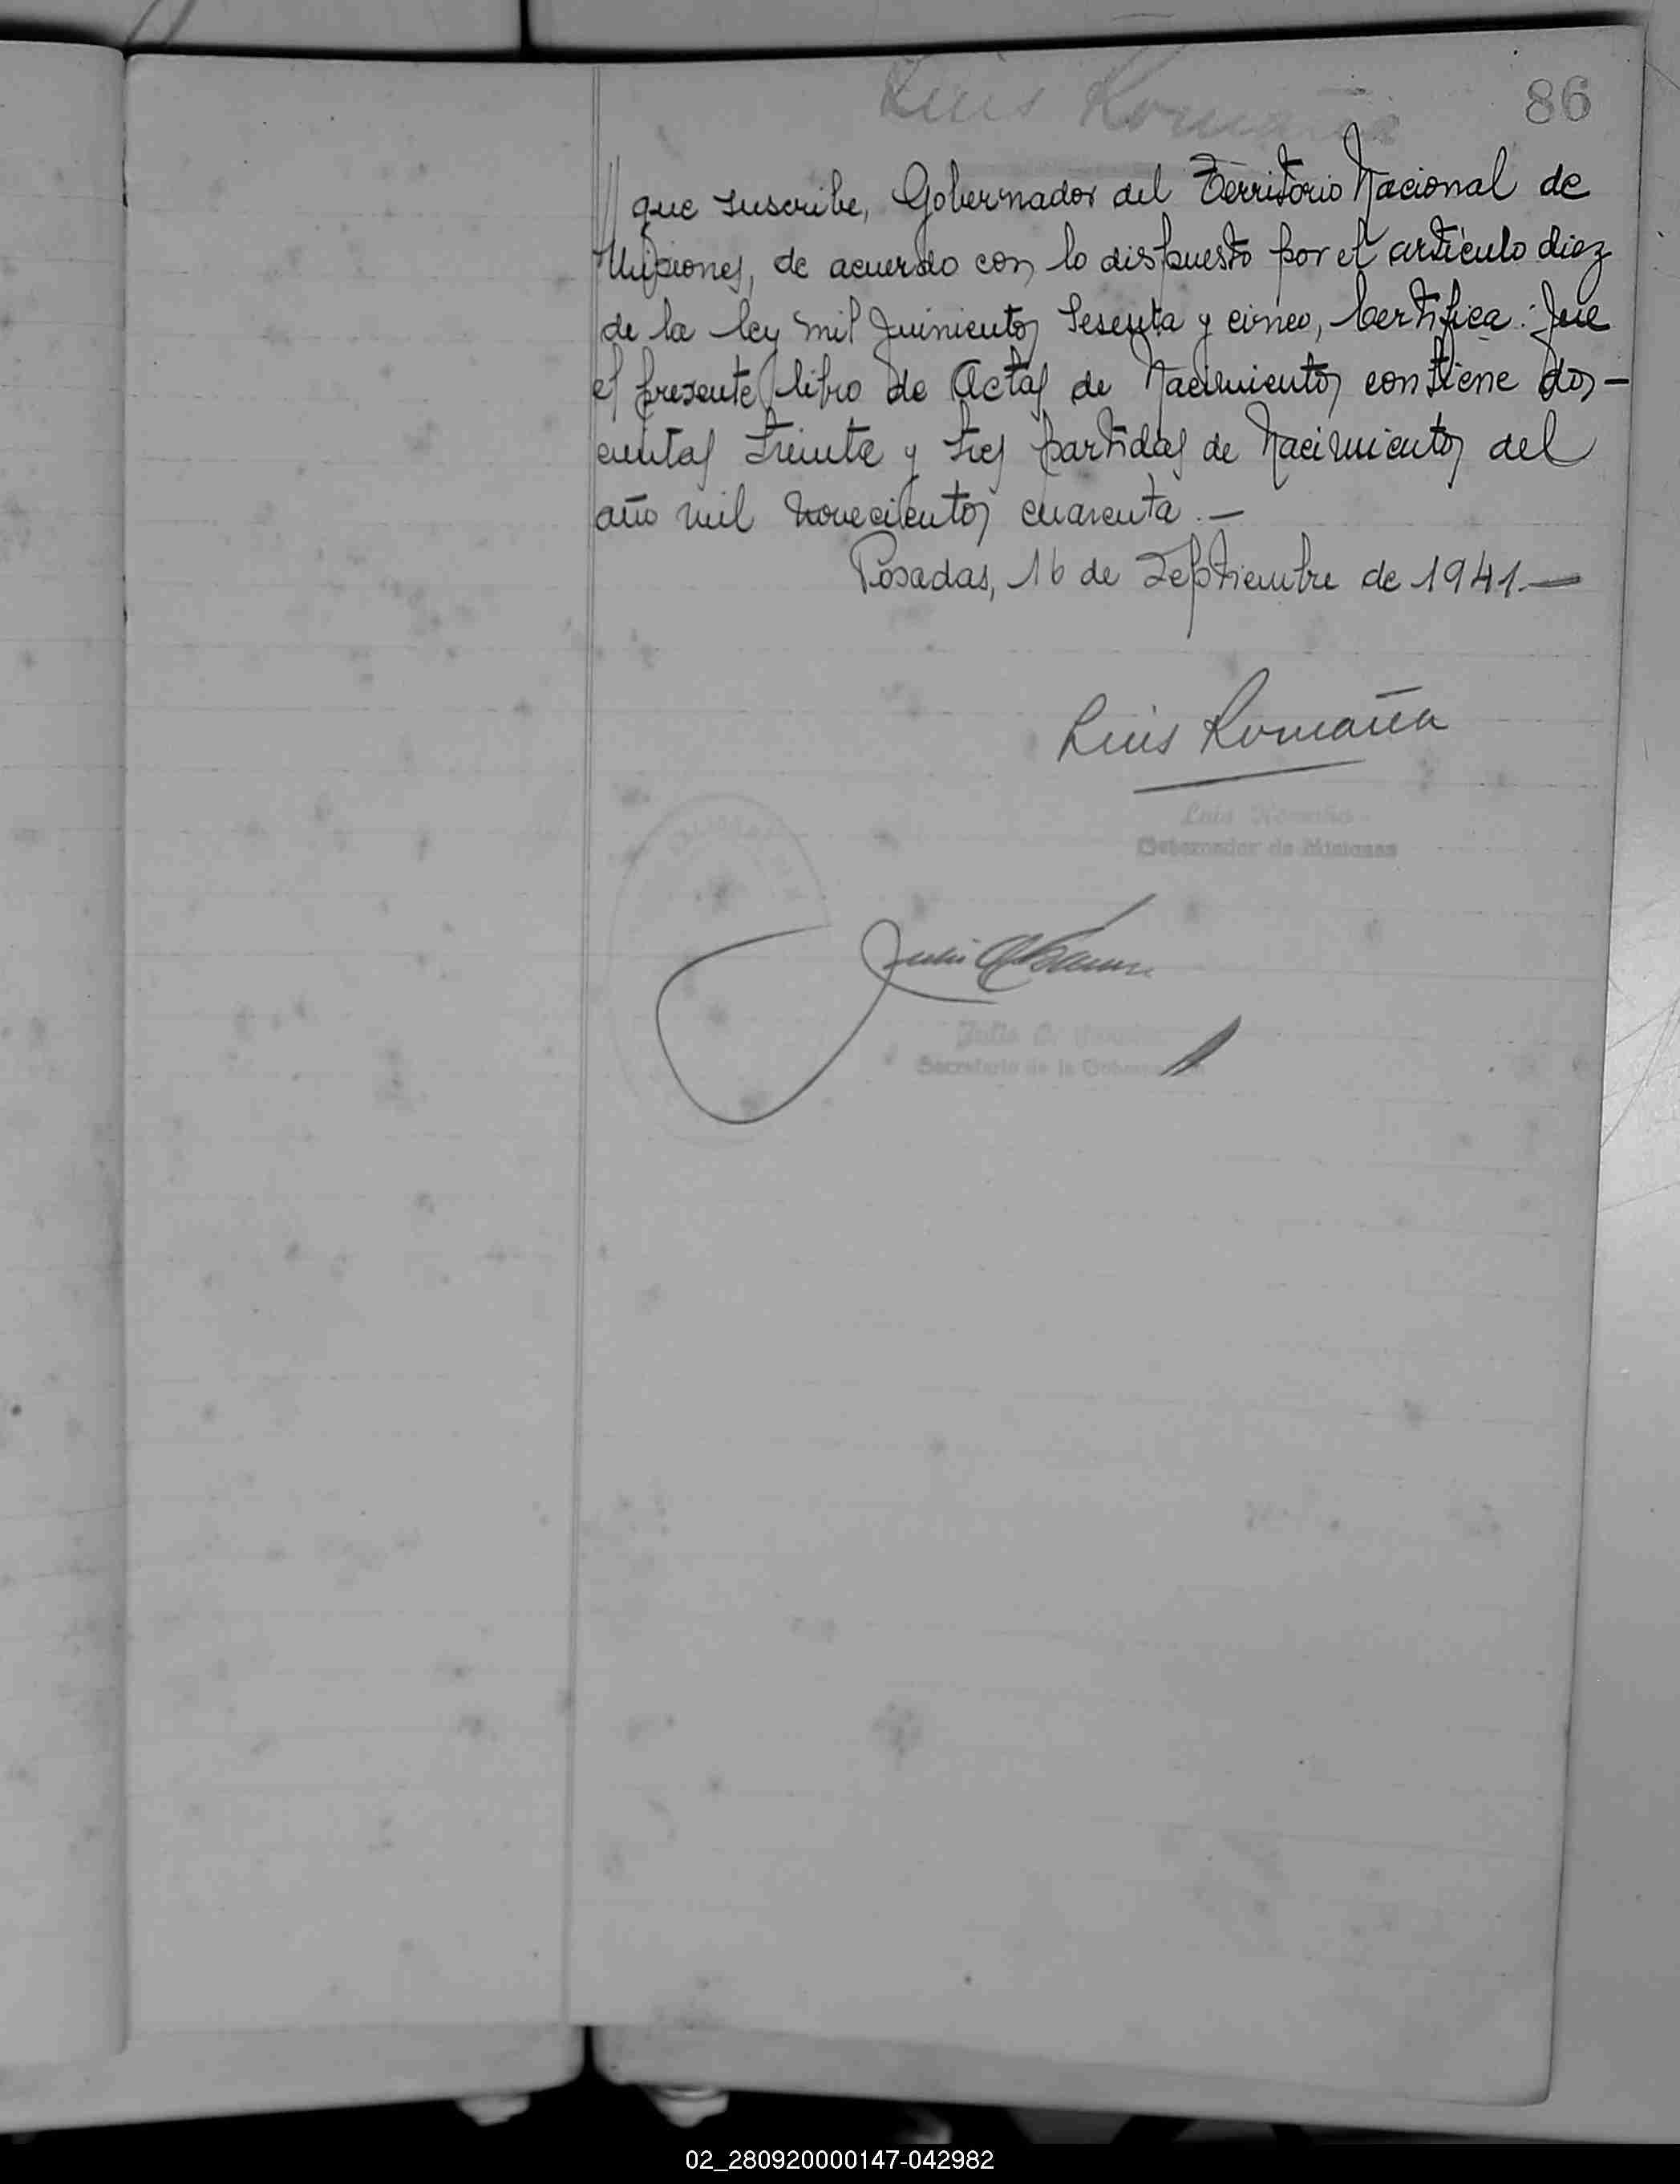 Luis Romaña
86
que suscribe, Gobernador del Territorio Nacional de
Misiones, de acuerdo con lo dispuesto por el artículo diez
de la ley mil quinientos sesenta y cinco, Certifica: Que
el presente libro de Actas de Nacimientos contiene dos-
cientas treinta y tres partidas de Nacimientos del
año mil novecientos cuarenta.—
Posadas, 16 de Septiembre de 1941.—
Luis Romaña
Luis Romaña
Gobernador de Misiones
Julio
Julio
Secretario de la Gobernación
02_280920000147-042982